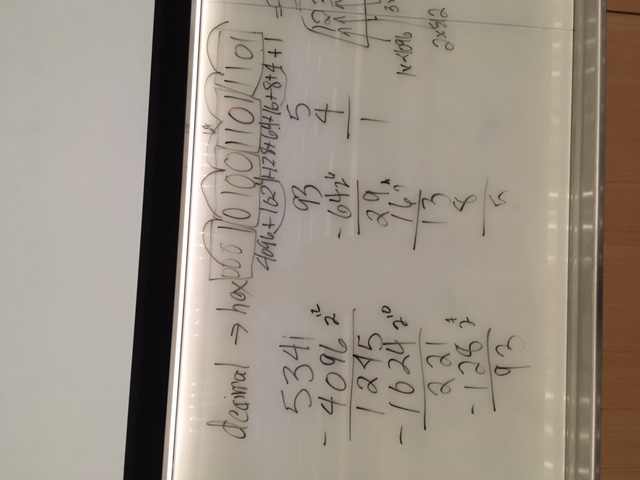 decimal → hex 0001 0100 1101 1101
4096+1024+128+64+16+8+4+1
5341
- 4096 2¹²
1245
- 1024 2¹⁰
221
- 128 2⁷
93
93
- 64 2⁶
29
16 2⁴
13
8
5
5
4
1
1x4096